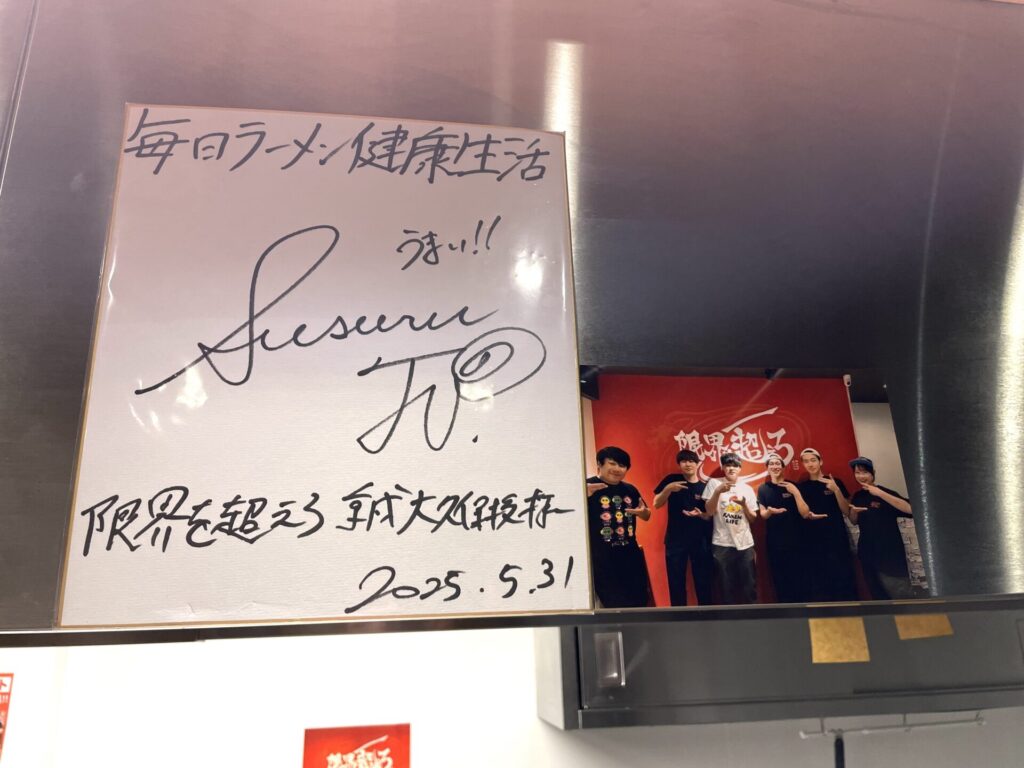 毎日ラーメン健康生活
うまい!!
Susuru
TV.
限界を超えろ 京成大久保
2025.5.31
限界を超えろ
RAMEN
LIFE